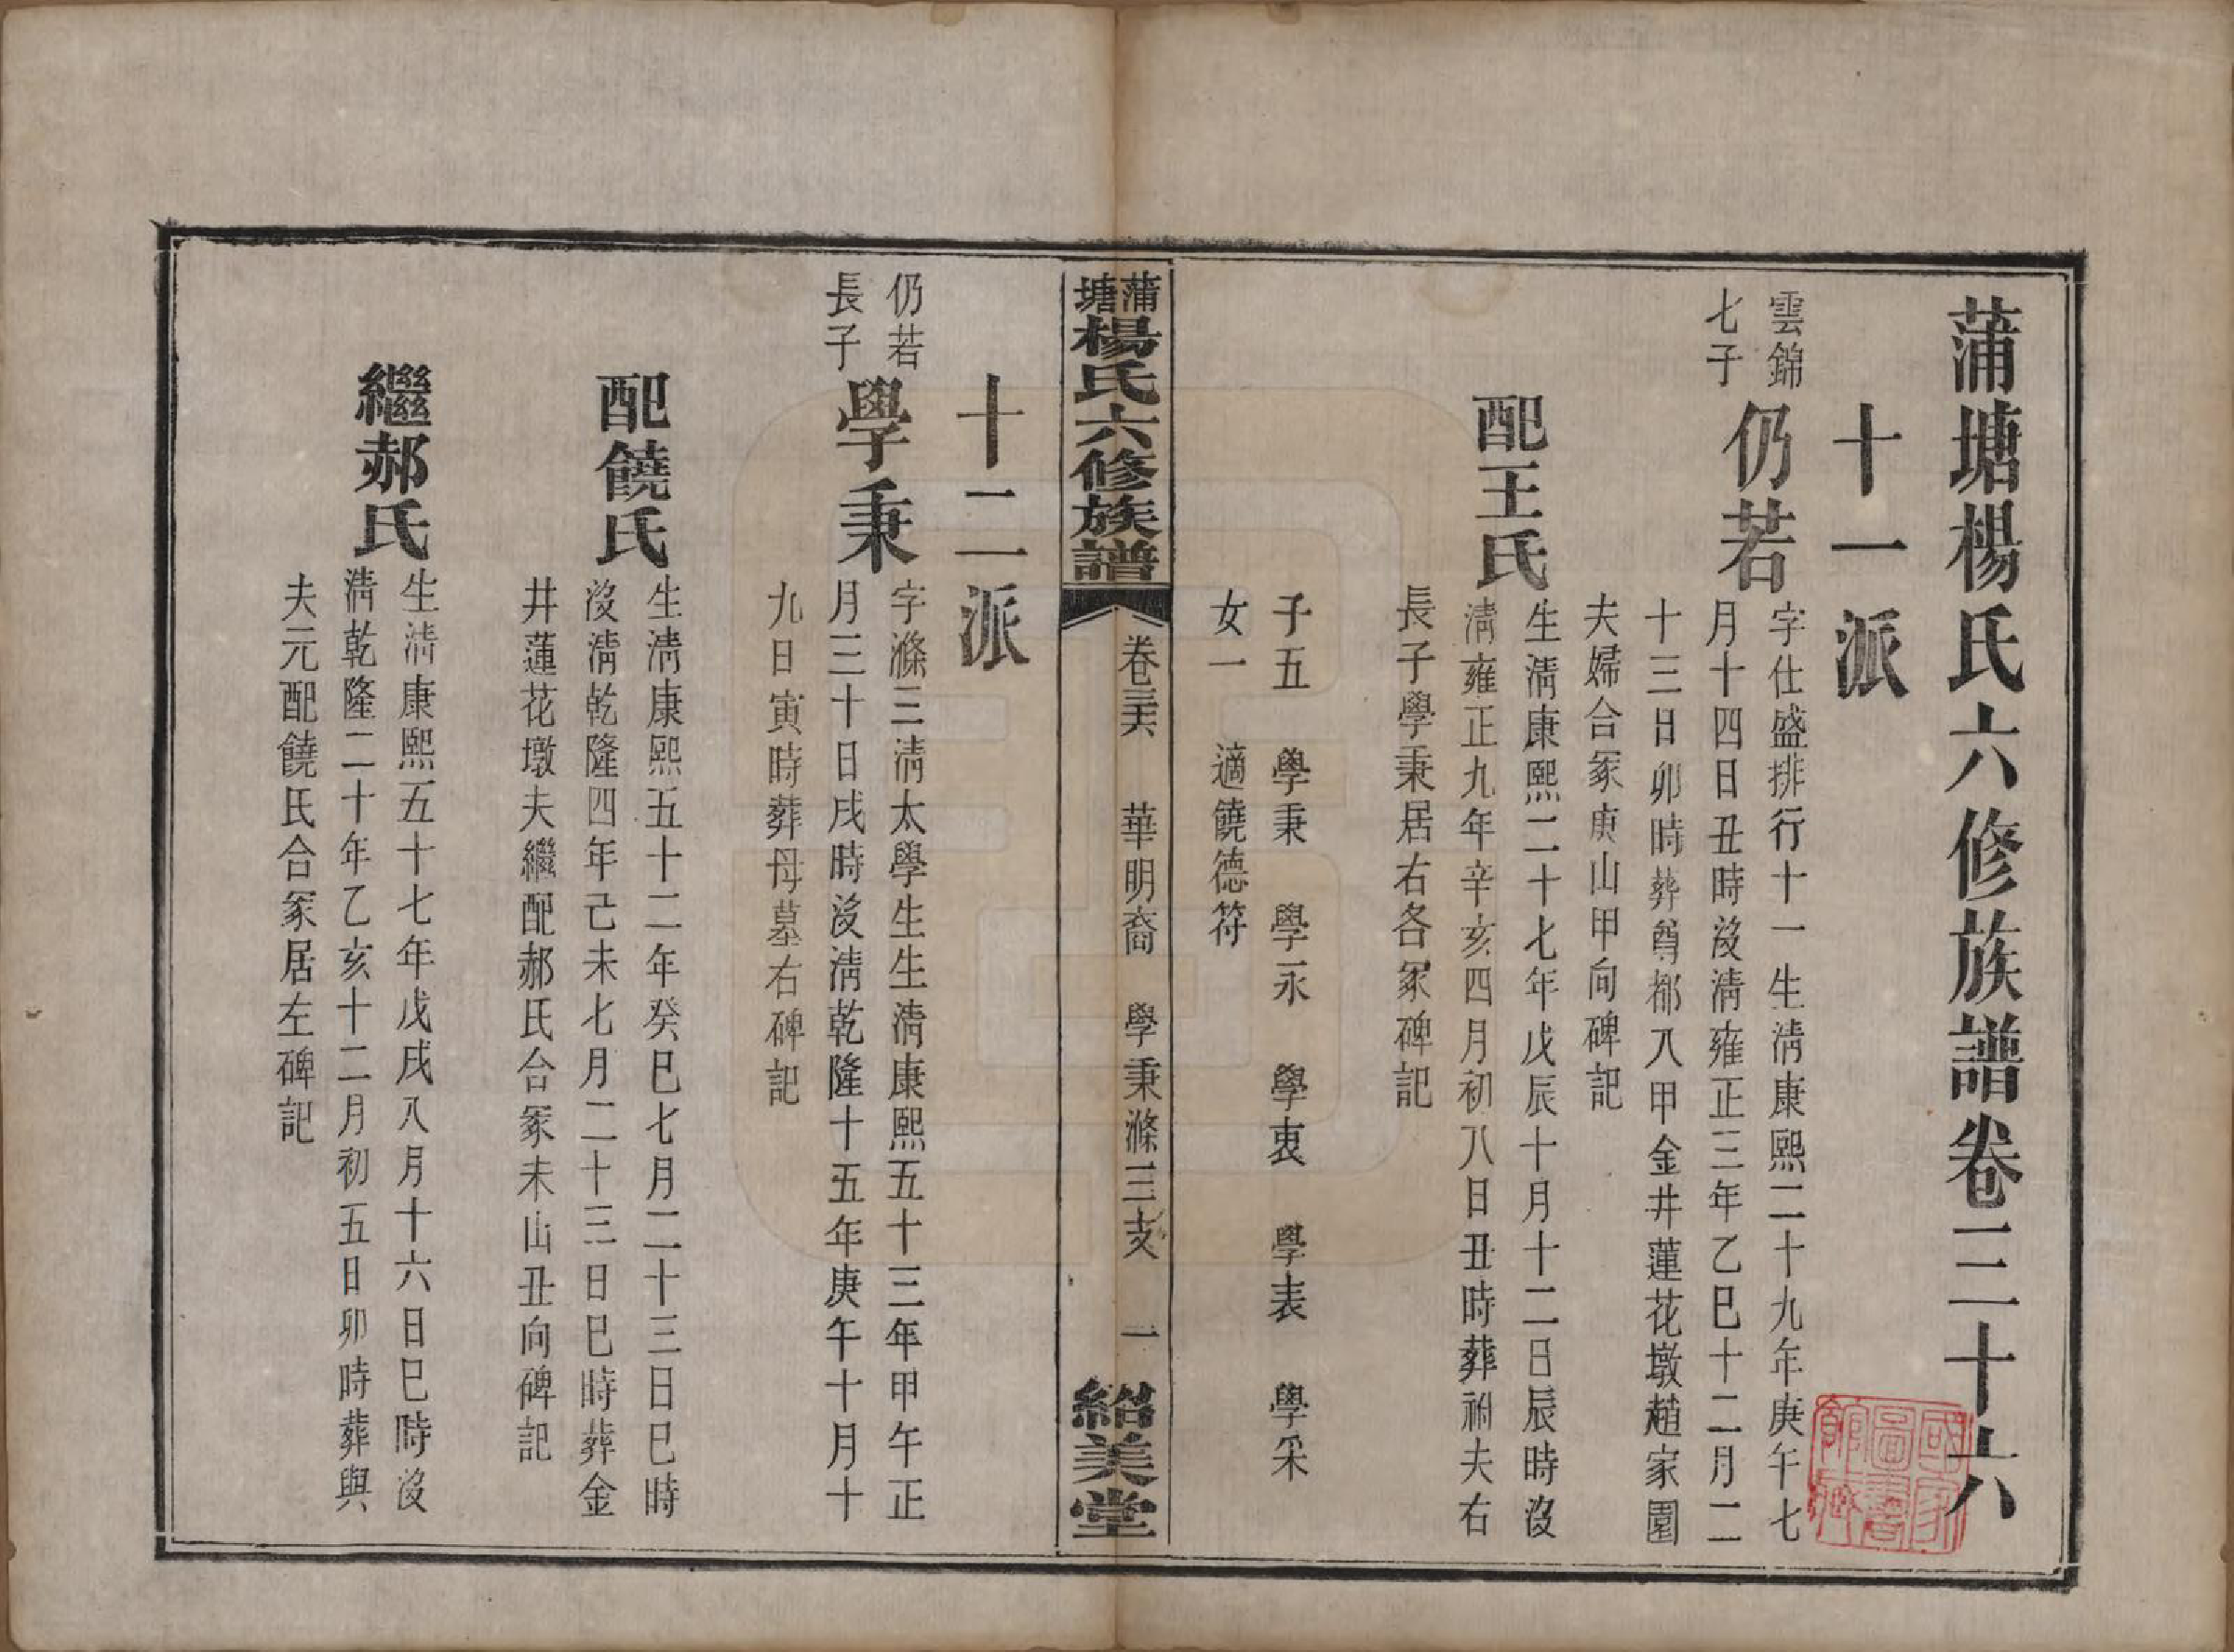 蒲塘楊氏六修族譜卷三十六
十一派
雲錦
七子
仍若
字仕盛排行十一生清康熙二十九年庚午七
月十四日丑時沒清雍正三年乙巳十二月二
十三日卯時葬尊都八甲金井蓮花墩趙家園
夫婦合冢庚山甲向碑記
配王氏
生清康熙二十七年戊辰十月十二日辰時沒
清雍正九年辛亥四月初八日丑時葬祔夫右
長子學秉居右各冢碑記
子五 學秉 學永 學衷 學表 學采
女一 適饒德符
蒲塘楊氏六修族譜
卷三十六 華明裔 學秉滌三支 一
紹美堂
十二派
仍若
長子
學秉
字滌三清太學生生清康熙五十三年甲午正
月三十日戌時沒清乾隆十五年庚午十月十
九日寅時葬母墓右碑記
配饒氏
生清康熙五十二年癸巳七月二十三日巳時
沒清乾隆四年己未七月二十三日巳時葬金
井蓮花墩夫繼配郝氏合冢未山丑向碑記
繼郝氏
生清康熙五十七年戊戌八月十六日巳時沒
清乾隆二十年乙亥十二月初五日卯時葬與
夫元配饒氏合冢居左碑記